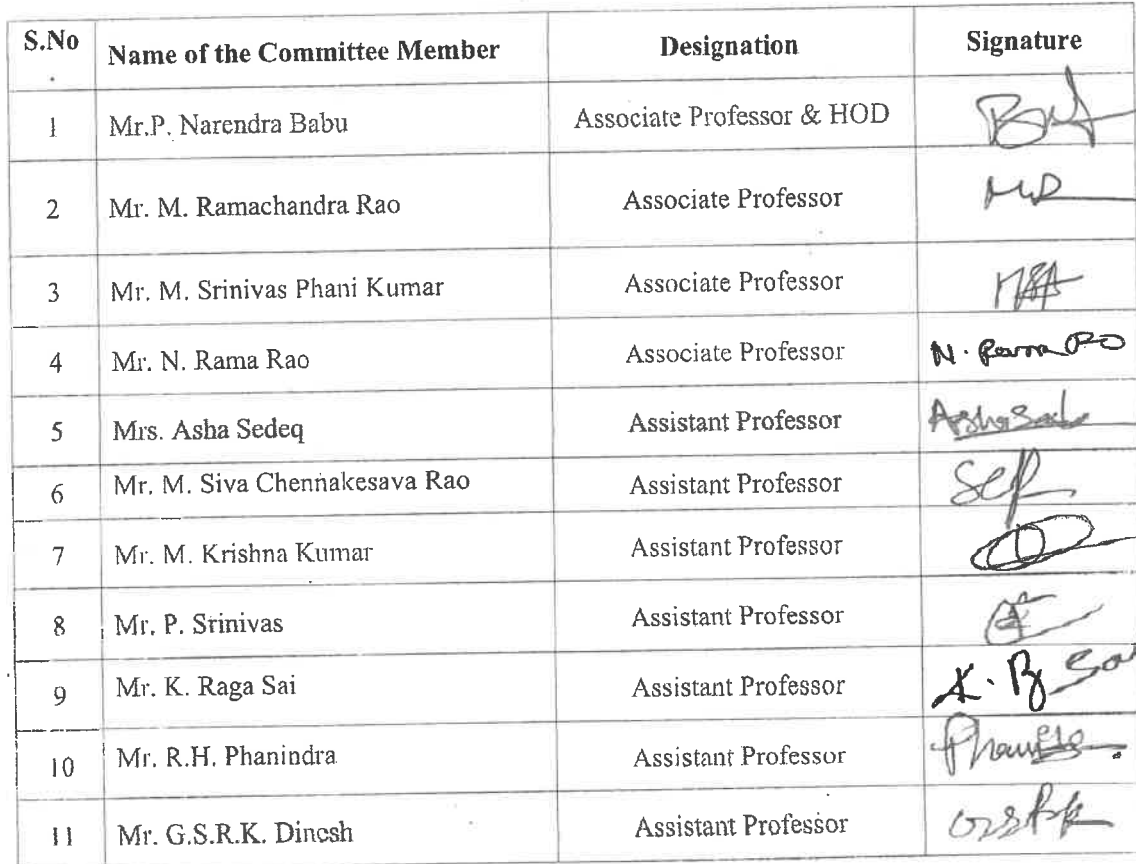 S.No Name of the Committee Member Designation Signature
1 Mr.P. Narendra Babu Associate Professor & HOD
2 Mr. M. Ramachandra Rao Associate Professor
3 Mr. M. Srinivas Phani Kumar Associate Professor
4 Mr. N. Rama Rao Associate Professor N. Rama
5 Mrs. Asha Sedeq Assistant Professor Asha
6 Mr. M. Siva Chennakesava Rao Assistant Professor
7 Mr. M. Krishna Kumar Assistant Professor
8 Mr. P. Srinivas Assistant Professor
9 Mr. K. Raga Sai Assistant Professor K. R Sai
10 Mr. R.H. Phanindra Assistant Professor
11 Mr. G.S.R.K. Dinesh Assistant Professor